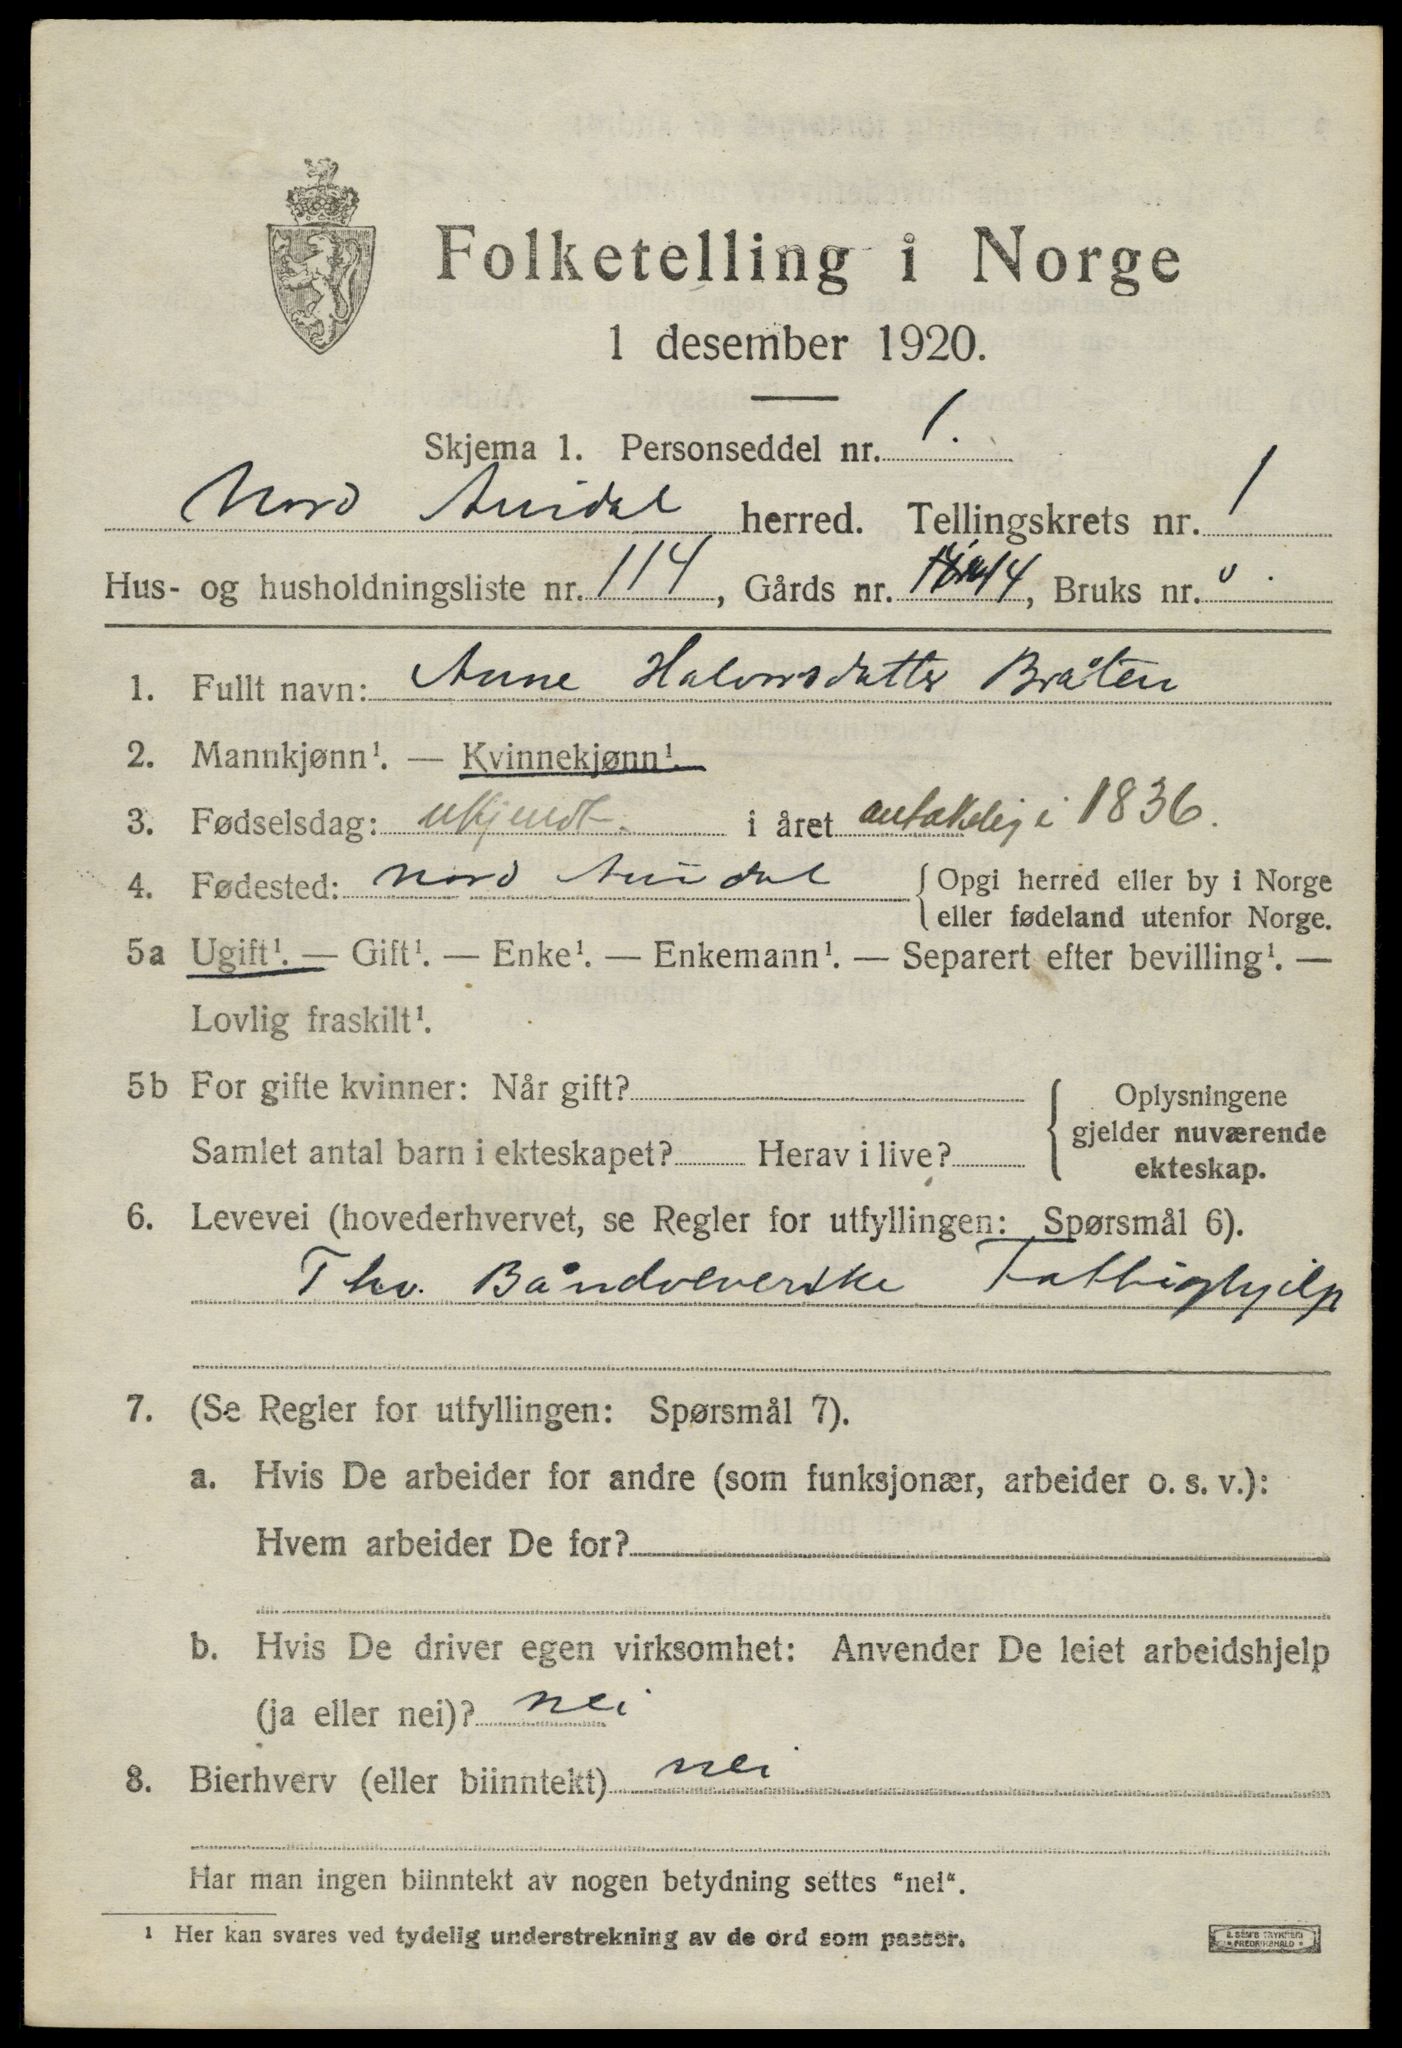 Folketelling i Norge
1 desember 1920.
Skjema 1. Personseddel nr. 1.
Nord Aurdal herred. Tellingskrets nr. 1
Hus- og husholdningsliste nr. 114, Gårds nr. 14, Bruks nr.
1. Fullt navn: Anne Halvorsdatter Bråten
2. Mannkjønn¹. — Kvinnekjønn¹.
3. Fødselsdag: ukjendt. i året antakelig i 1836.
4. Fødested: Nord Aurdal {Opgi herred eller by i Norge
eller fødeland utenfor Norge.
5a Ugift¹. — Gift¹. — Enke¹. — Enkemann¹. — Separert efter bevilling¹. —
Lovlig fraskilt¹.
5b For gifte kvinner: Når gift?
Samlet antal barn i ekteskapet? Herav i live?
{Oplysningene
gjelder nuværende
ekteskap.
6. Levevei (hovederhvervet, se Regler for utfyllingen: Spørsmål 6).
Fhv. Båndveverske Fattighjelp
7. (Se Regler for utfyllingen: Spørsmål 7).
a. Hvis De arbeider for andre (som funksjonær, arbeider o. s. v.):
Hvem arbeider De for?
b. Hvis De driver egen virksomhet: Anvender De leiet arbeidshjelp
(ja eller nei)? nei
8. Bierhverv (eller biinntekt) nei
Har man ingen biinntekt av nogen betydning settes "nei".
¹ Her kan svares ved tydelig understrekning av de ord som passer.
E. SEM'S TRYKKERI
FREDRIKSHALD